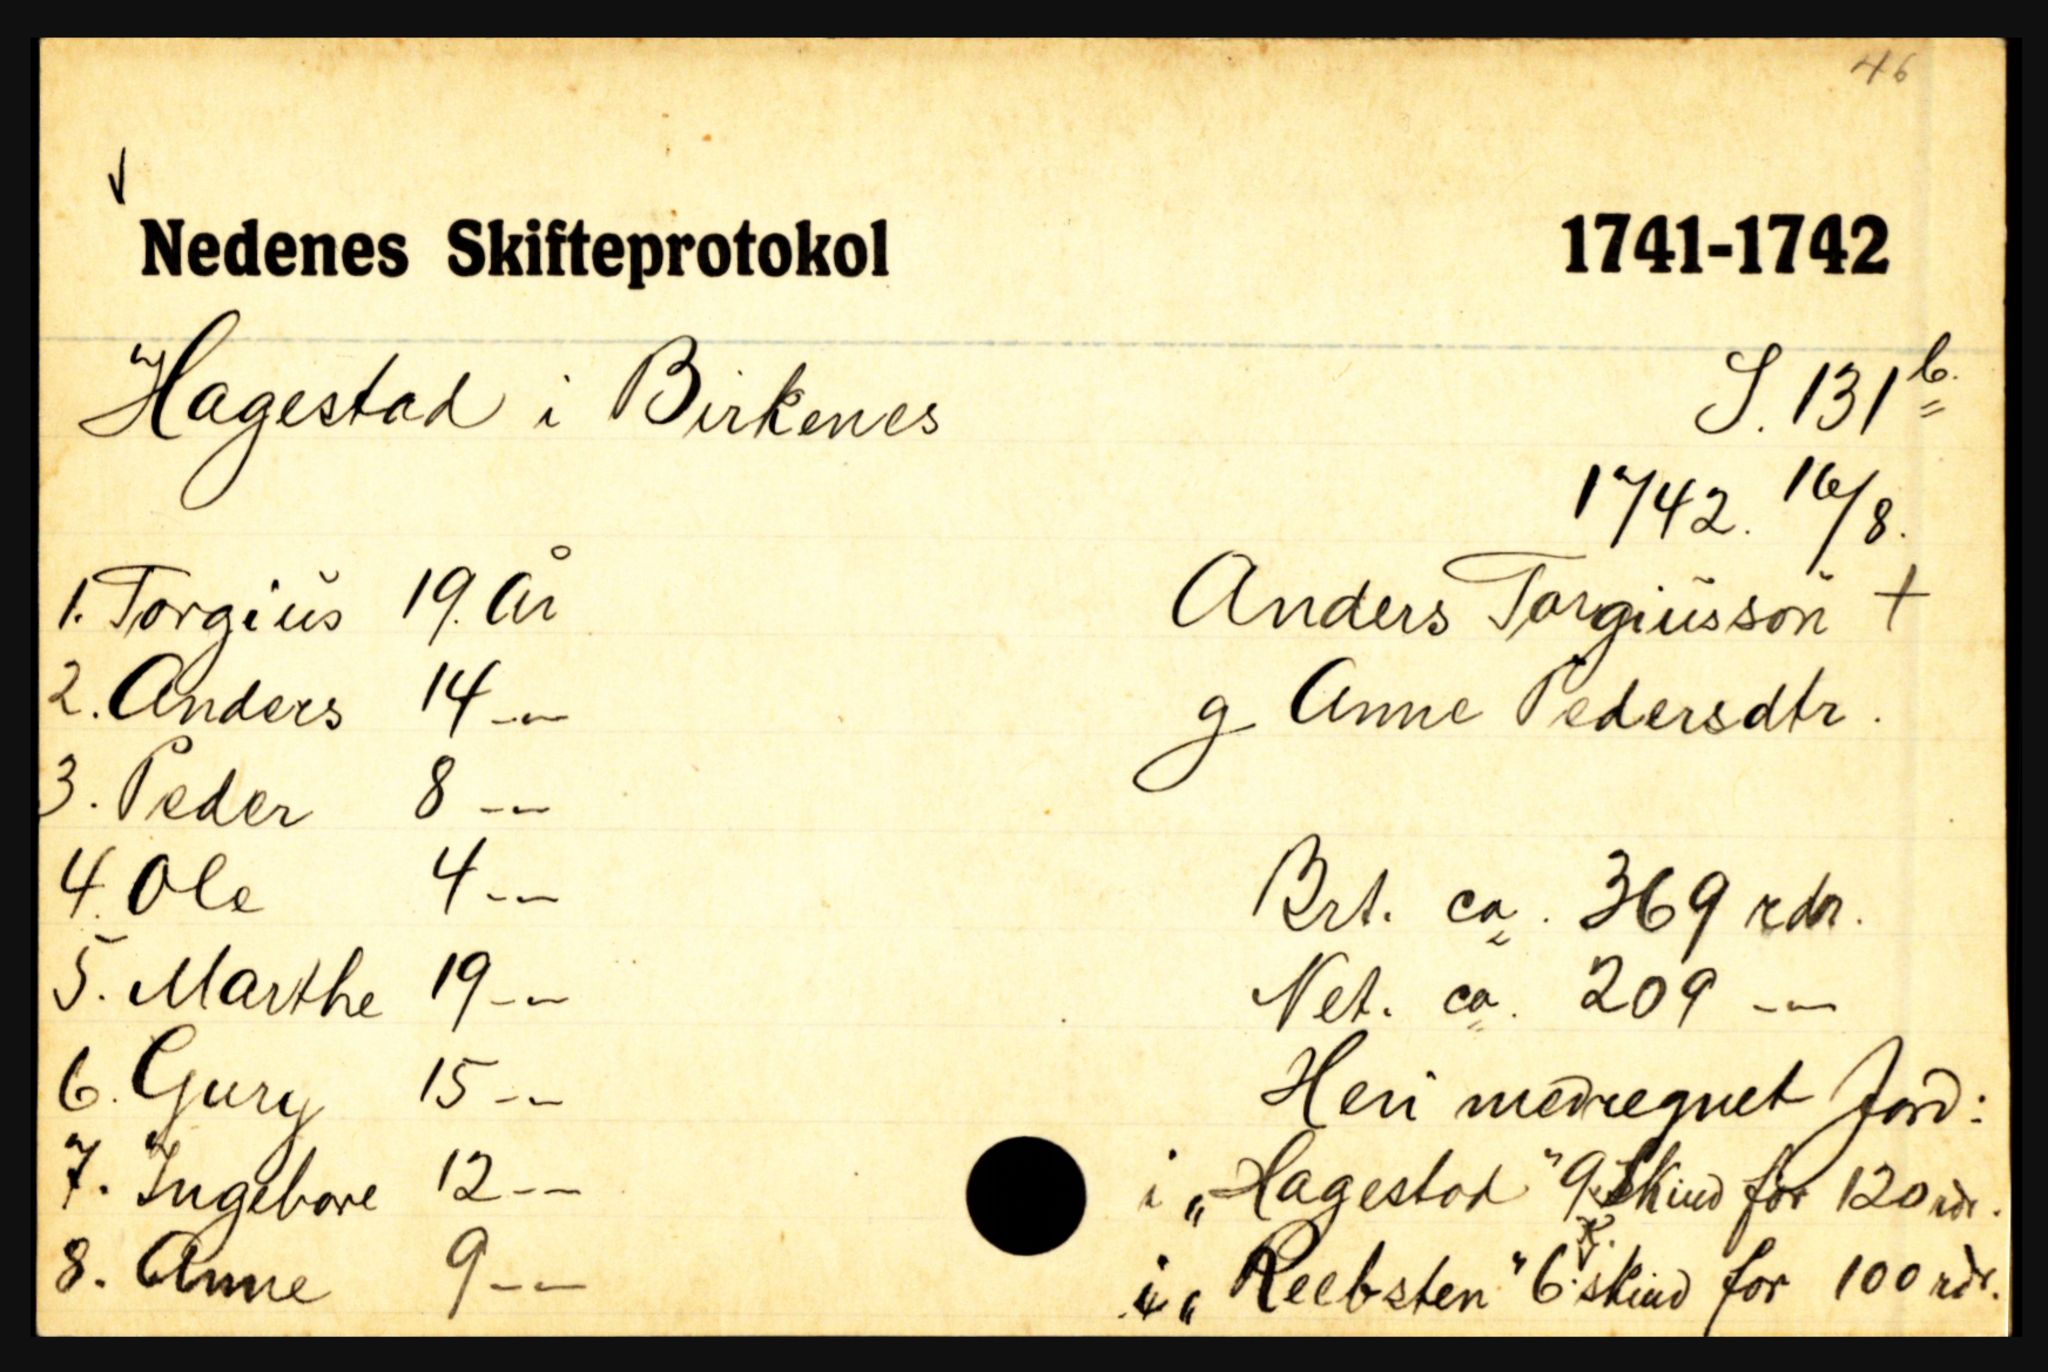 46
Nedenes Skifteprotokol 1741-1742
Hagestad i Birkenes S. 131 b.
1742. 16/8.
1. Torgiŭs 19. År Anders Torgiŭsson +
2. Anders 14 -"- g Anne Pedersdtr.
3. Peder 8 -"-
4. Ole 4 -"- Brt. ca. 369 rdr.
5. Marthe 19 -"- Net. ca. 209 -"-
6. Gury 15 -"- Heri medregnet Jord:
7. Ingebore 12 -"- i „Hagestad" 9 Skind for 120 rdr.
8. Anne 9 -"- i „Reebsten" 6 k. skind for 100 rdr.